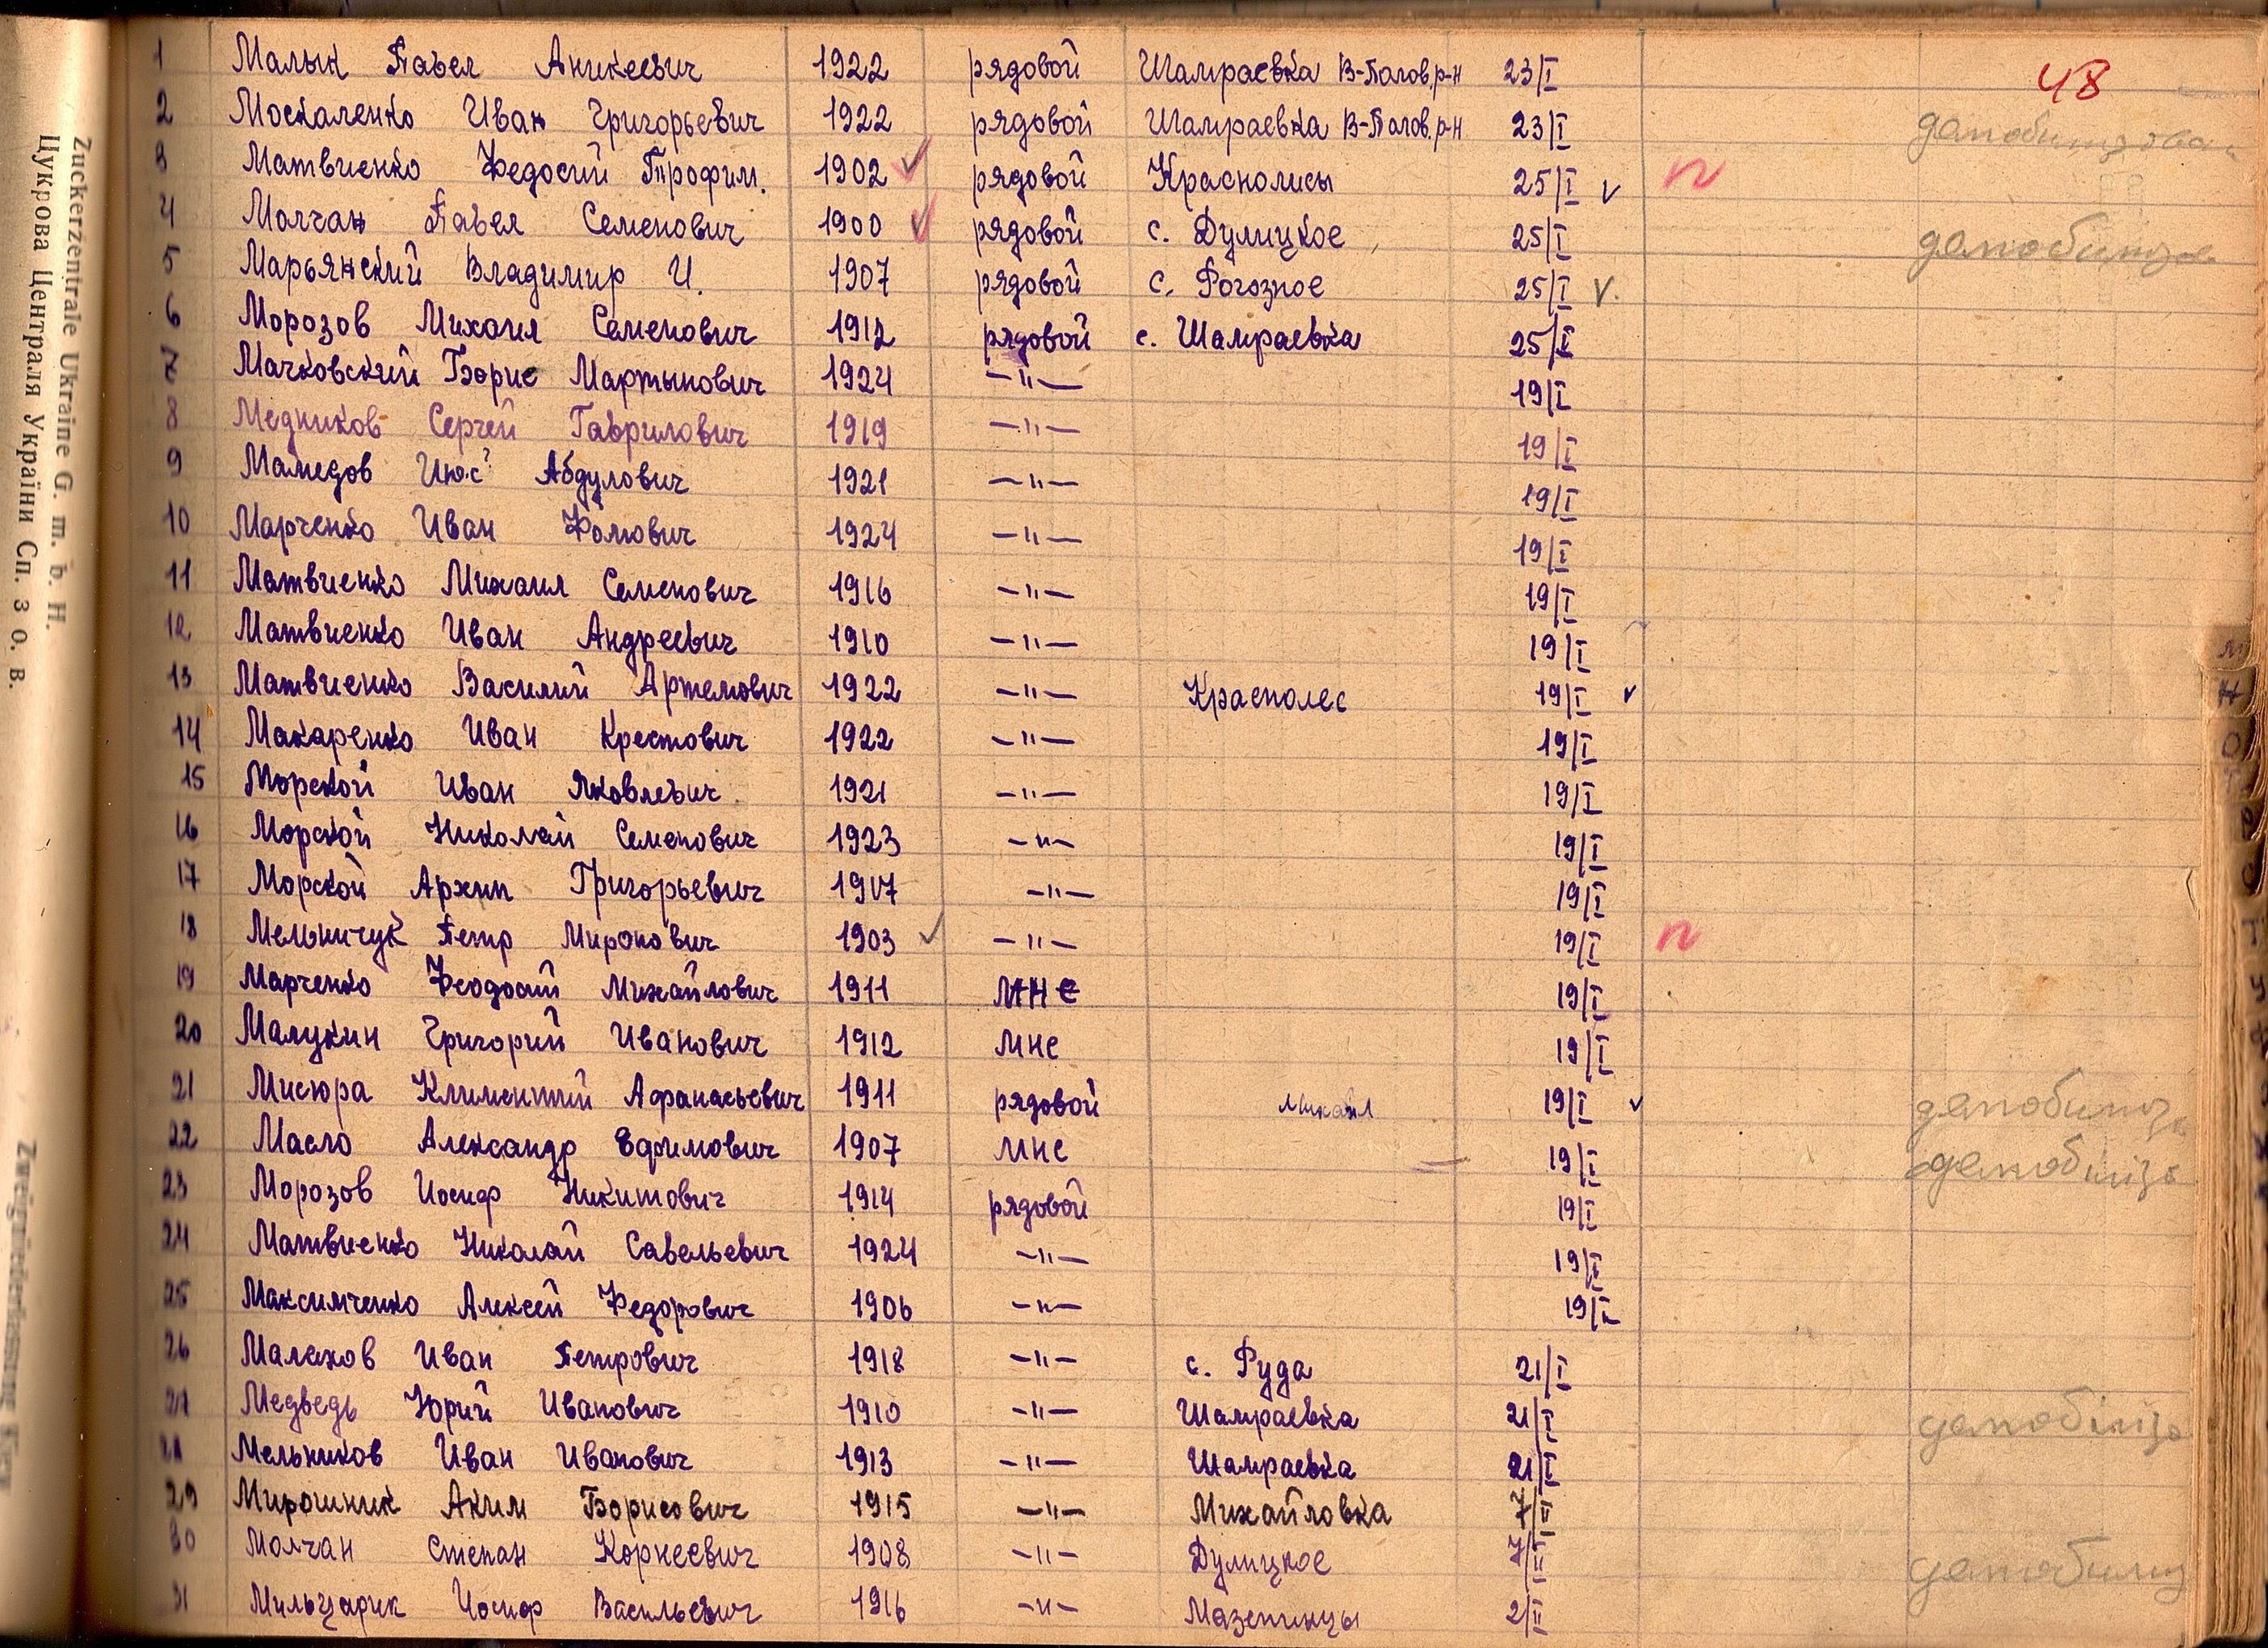 48
1 Малык Павел Аникеевич 1922 рядовой Шамраевка В-Полов. р-н 23/I
2 Москаленко Иван Григорьевич 1922 рядовой Шамраевка В-Полов. р-н 23/I
3 Матвиенко Федосий Трофим. 1902 рядовой Краснолисы 25/I
4 Молчан Павел Семенович 1900 рядовой с. Дулицкое 25/I
5 Марьянский Владимир И. 1907 рядовой с. Рогозное 25/I
6 Морозов Михаил Семенович 1912 рядовой с. Шамраевка 25/I
7 Мачковский Борис Мартынович 1924 —"— 19/I
8 Медников Сергей Гаврилович 1919 —"— 19/I
9 Мамедов Июс? Абдулович 1921 —"— 19/I
10 Марченко Иван Фомович 1924 —"— 19/I
11 Матвиенко Михаил Семенович 1916 —"— 19/I
12 Матвиенко Иван Андреевич 1910 —"— 19/I
13 Матвиенко Василий Артемович 1922 —"— Краснолес 19/I
14 Макаренко Иван Крестович 1922 —"— 19/I
15 Морской Иван Яковлевич 1921 —"— 19/I
16 Морской Николай Семенович 1923 —"— 19/I
17 Морской Архип Григорьевич 1917 —"— 19/I
18 Мельничук Петр Миронович 1903 —"— 19/I
19 Марченко Феодосий Михайлович 1911 мнс 19/I
20 Малукин Григорий Иванович 1912 мнс 19/I
21 Мисюра Климентий Афанасьевич 1911 рядовой Михайл 19/I
22 Масло Александр Ефимович 1907 мнс 19/I
23 Морозов Иосиф Никитович 1914 рядовой 19/I
24 Матвиенко Николай Савельевич 1924 —"— 19/I
25 Максимченко Алексей Федорович 1906 —"— 19/I
26 Малахов Иван Петрович 1918 —"— с. Руда 21/I
27 Медведь Юрий Иванович 1910 —"— Шамраевка 21/I
28 Мельников Иван Иванович 1913 —"— Шамраевка 21/I
29 Мирошник Аким Борисович 1915 —"— Михайловка 7/II
30 Молчан Степан Корнеевич 1908 —"— Дулицкое 7/II
31 Мильцарик Иосиф Васильевич 1916 —"— Мазепинцы 2/II
Zuckerzentrale Ukraine G. m. b. H.
Цукрова Централя України Сп. з о. в.